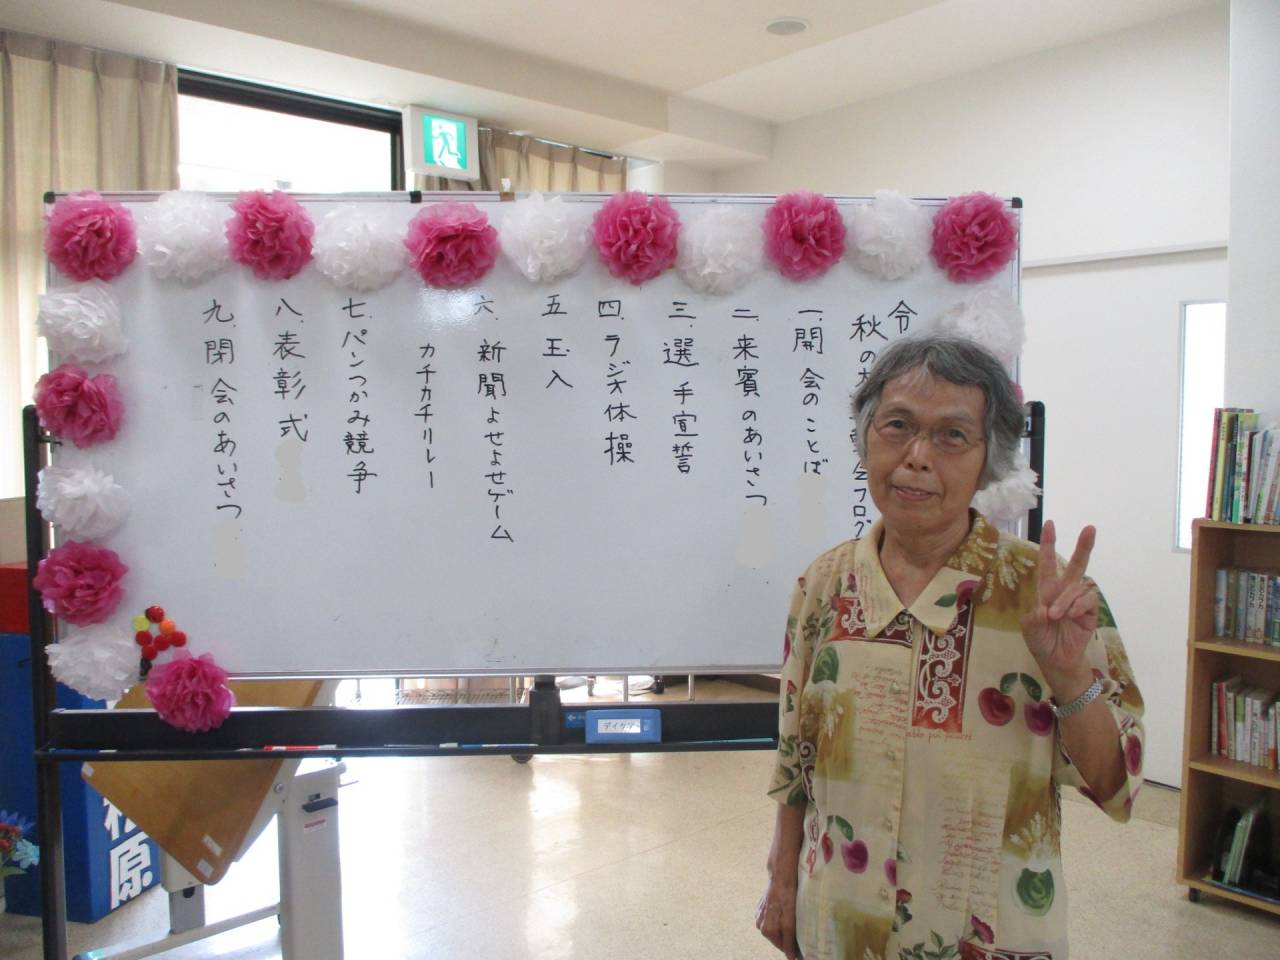 令
秋の
会プログ
一.開会のことば
二.来賓のあいさつ
三.選手宣誓
四.ラジオ体操
五 玉入
六.新聞よせよせゲーム
カチカチリレー
七.パンつかみ競争
八.表彰式
九.閉会のあいさつ
デイケア
原